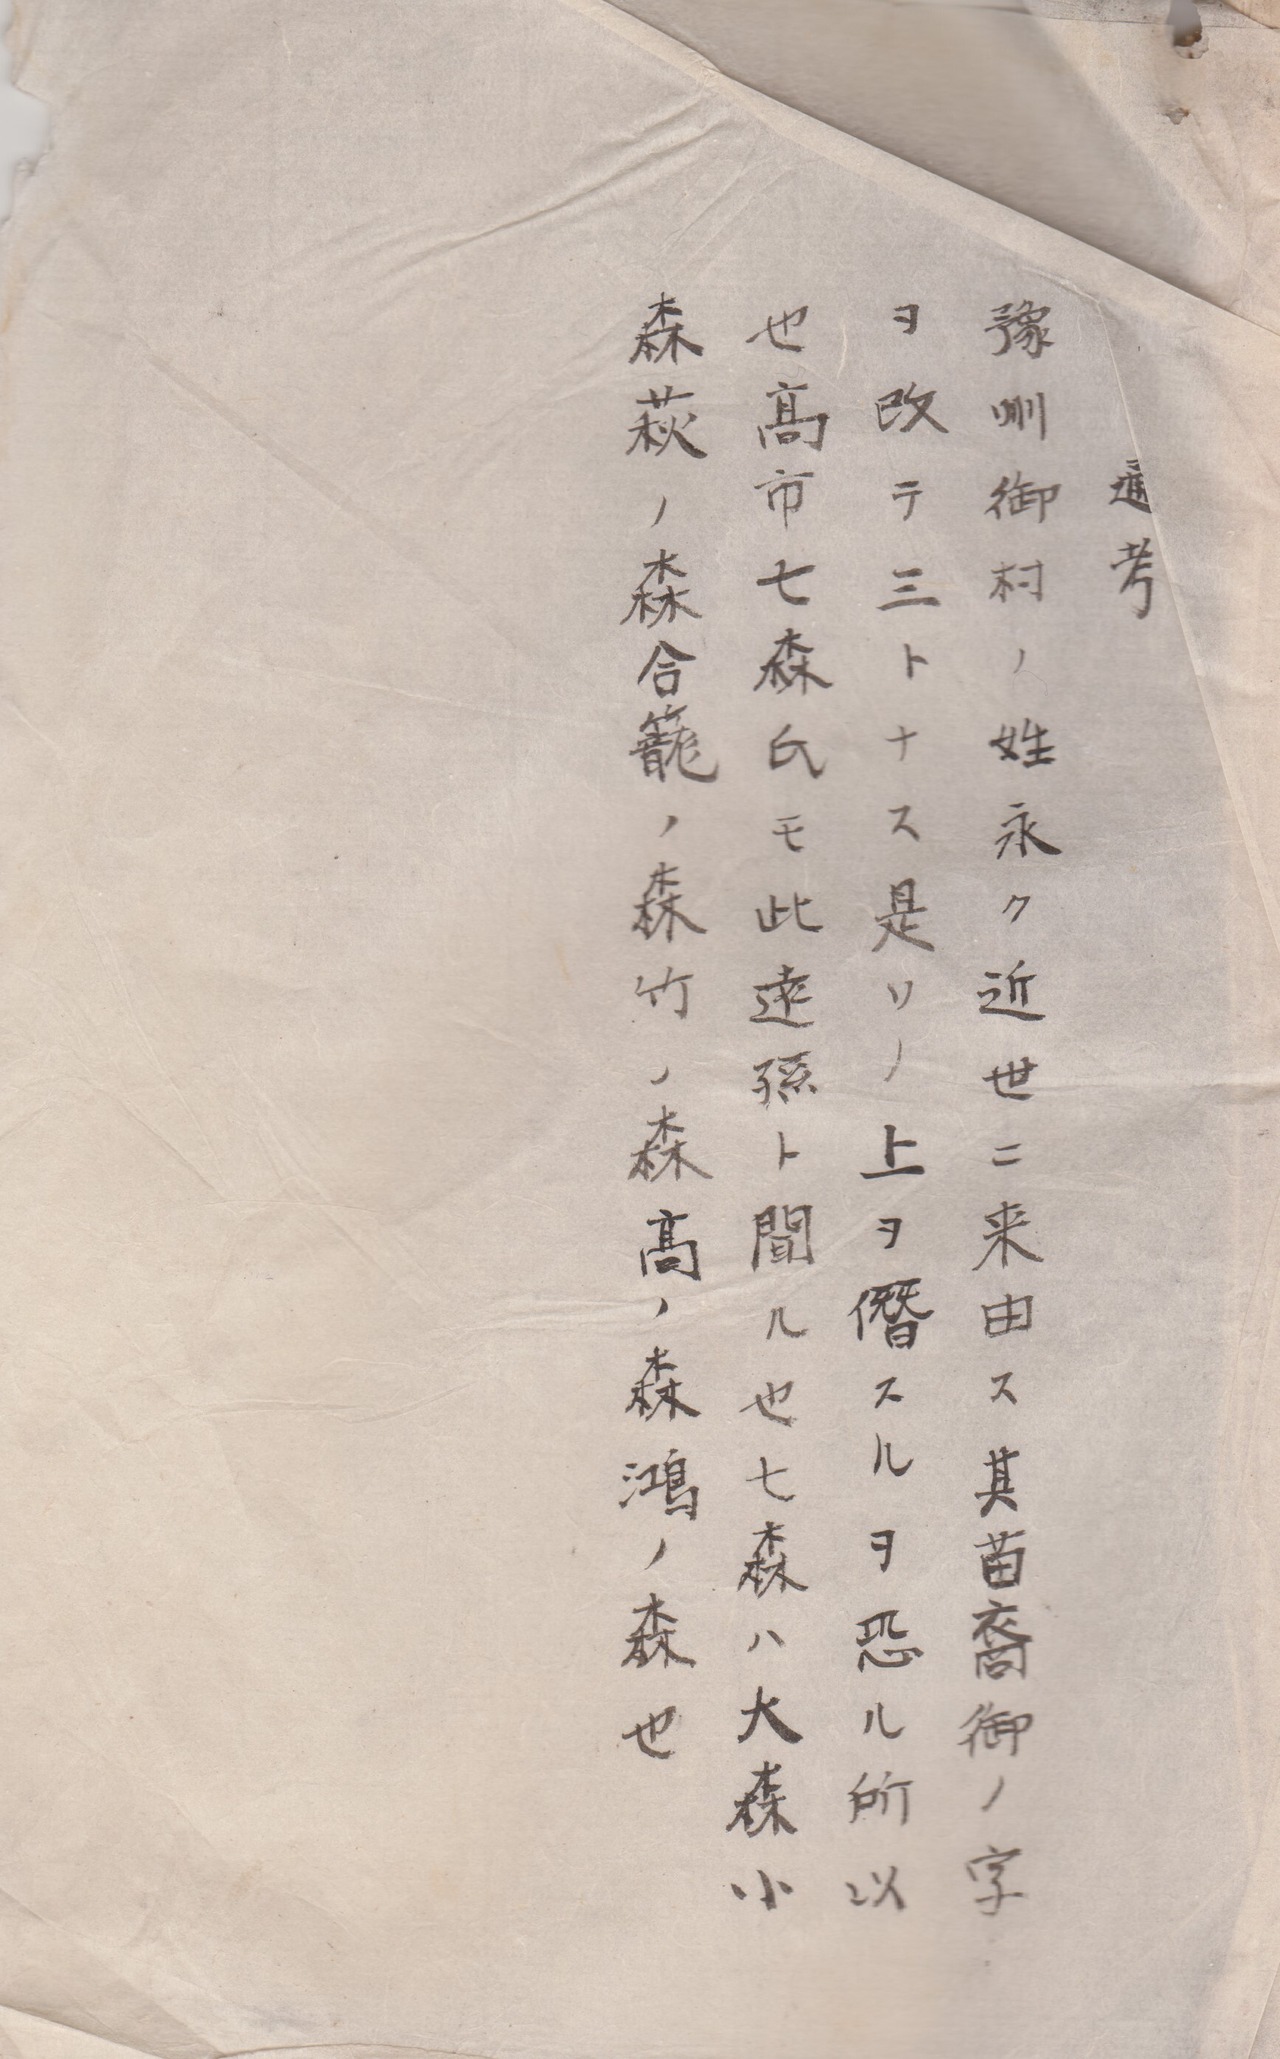 通考
豫刕御村ノ姓永ク近世ニ来由ス其苗裔御ノ字
ヲ改テ三トナス是ソノ上ヲ僭スルヲ恐ル所以
也髙市七森氏モ此遠孫ト聞ル也七森ハ大森小
森萩ノ森合籠ノ森竹ノ森髙ノ森鴻ノ森也